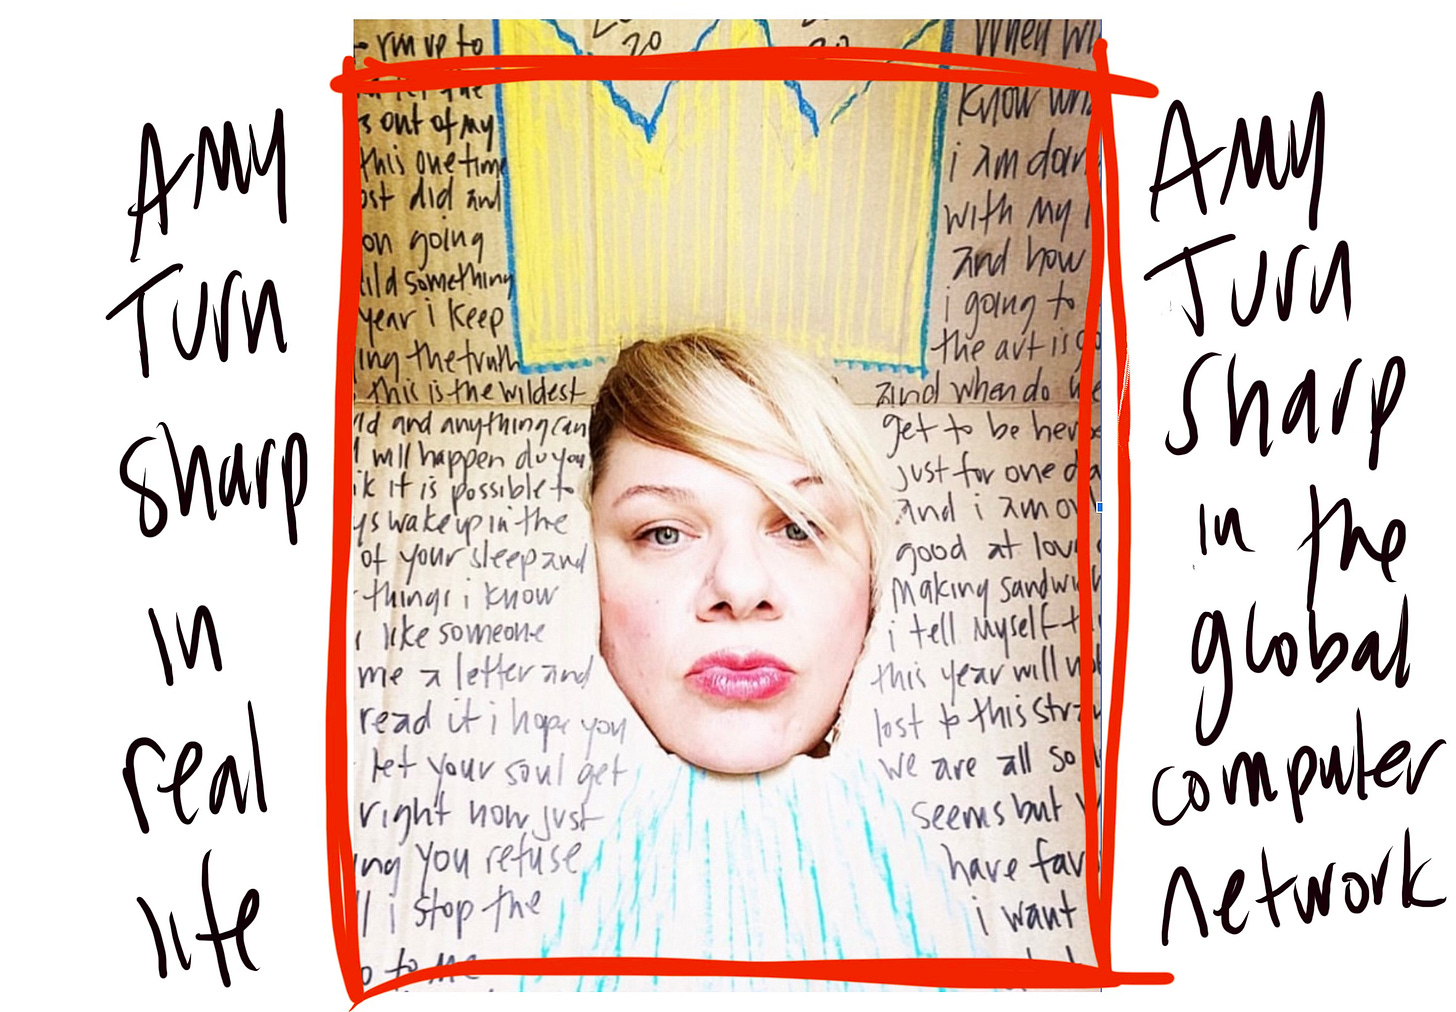 Amy
Turn
Sharp
in
real
life
run up to
out of my
this one time
did and
on going
something
year i keep
the truth
this is the wildest
and anything can
will happen do you
it is possible to
wake up in the
of your sleep and
things i know
like someone
me a letter and
read it i hope you
let your soul get
right now just
you refuse
i stop the
to me
20
20
When
know
i am
with my
and how
i going to
the art is
and when do we
get to be
just for one
and i am
good at
making
i tell myself
this year will
lost to this
we are all so
seems but
have
i want
Amy
Turn
Sharp
in the
global
computer
network